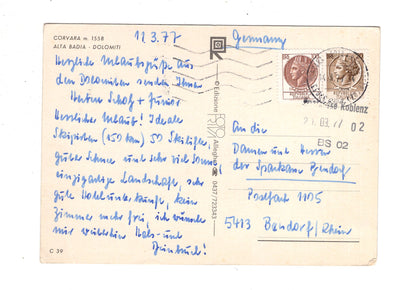 CORVARA m. 1558
ALTA BADIA - DOLOMITI
11.3.77
Herzliche Urlaubsgrüße aus
den Dolomiten senden Ihnen
Herlicher Urlaub! Ideale
Skipisten (150 km) 50 Skilifte,
guter Schnee und sehr viel Sonne
einzigartige Landschaft, sehr
gute Hotelunterkünfte, kein
Zimmer mehr frei, ich wünsche
mir weiterhin Hals- und
Beinbruch!
C 39
Edizione
Alleghe
0437/723343
Germany
Koblenz
21.03.77 02
BS 02
An die
Damen und Herren
der Sparkasse Bendorf
Postfach 1105
5413 Bendorf/Rhein